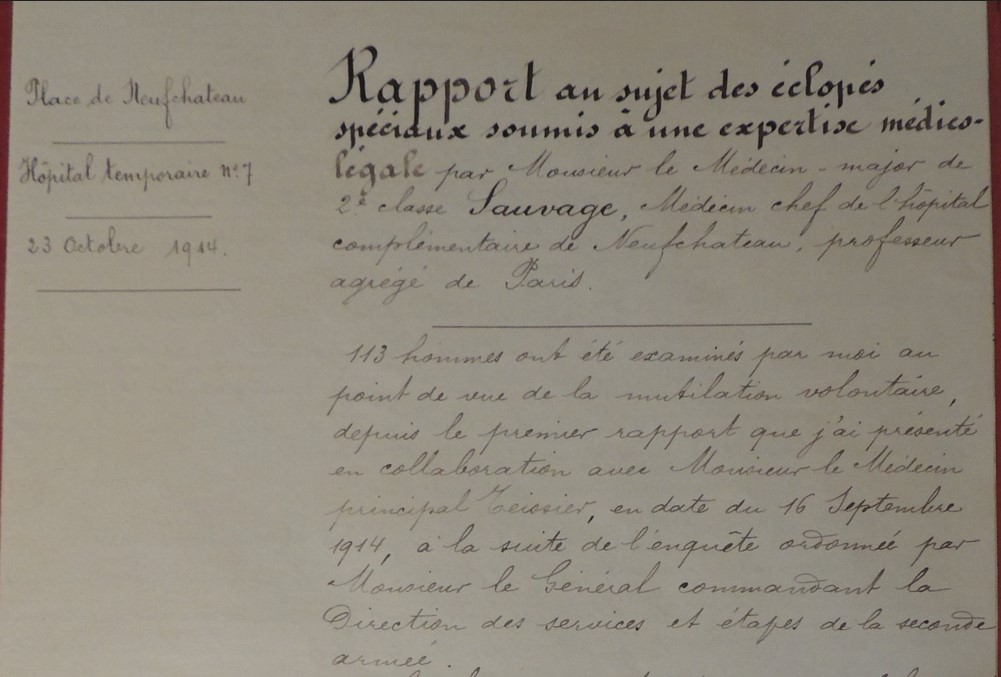 Place de Neufchateau
Hôpital temporaire nº 7
23 Octobre 1914.
Rapport au sujet des éclopés
spéciaux soumis à une expertise médico-
légale par Monsieur le Médecin-major de
2e classe Sauvage, Médecin chef de l'hôpital
complémentaire de Neufchateau, professeur
agrégé de Paris.
113 hommes ont été examinés par moi au
point de vue de la mutilation volontaire,
depuis le premier rapport que j'ai présenté
en collaboration avec Monsieur le Médecin
principal Teissier, en date du 16 Septembre
1914, à la suite de l'enquête ordonnée par
Monsieur le Général commandant la
Direction des services et étapes de la seconde
armée.